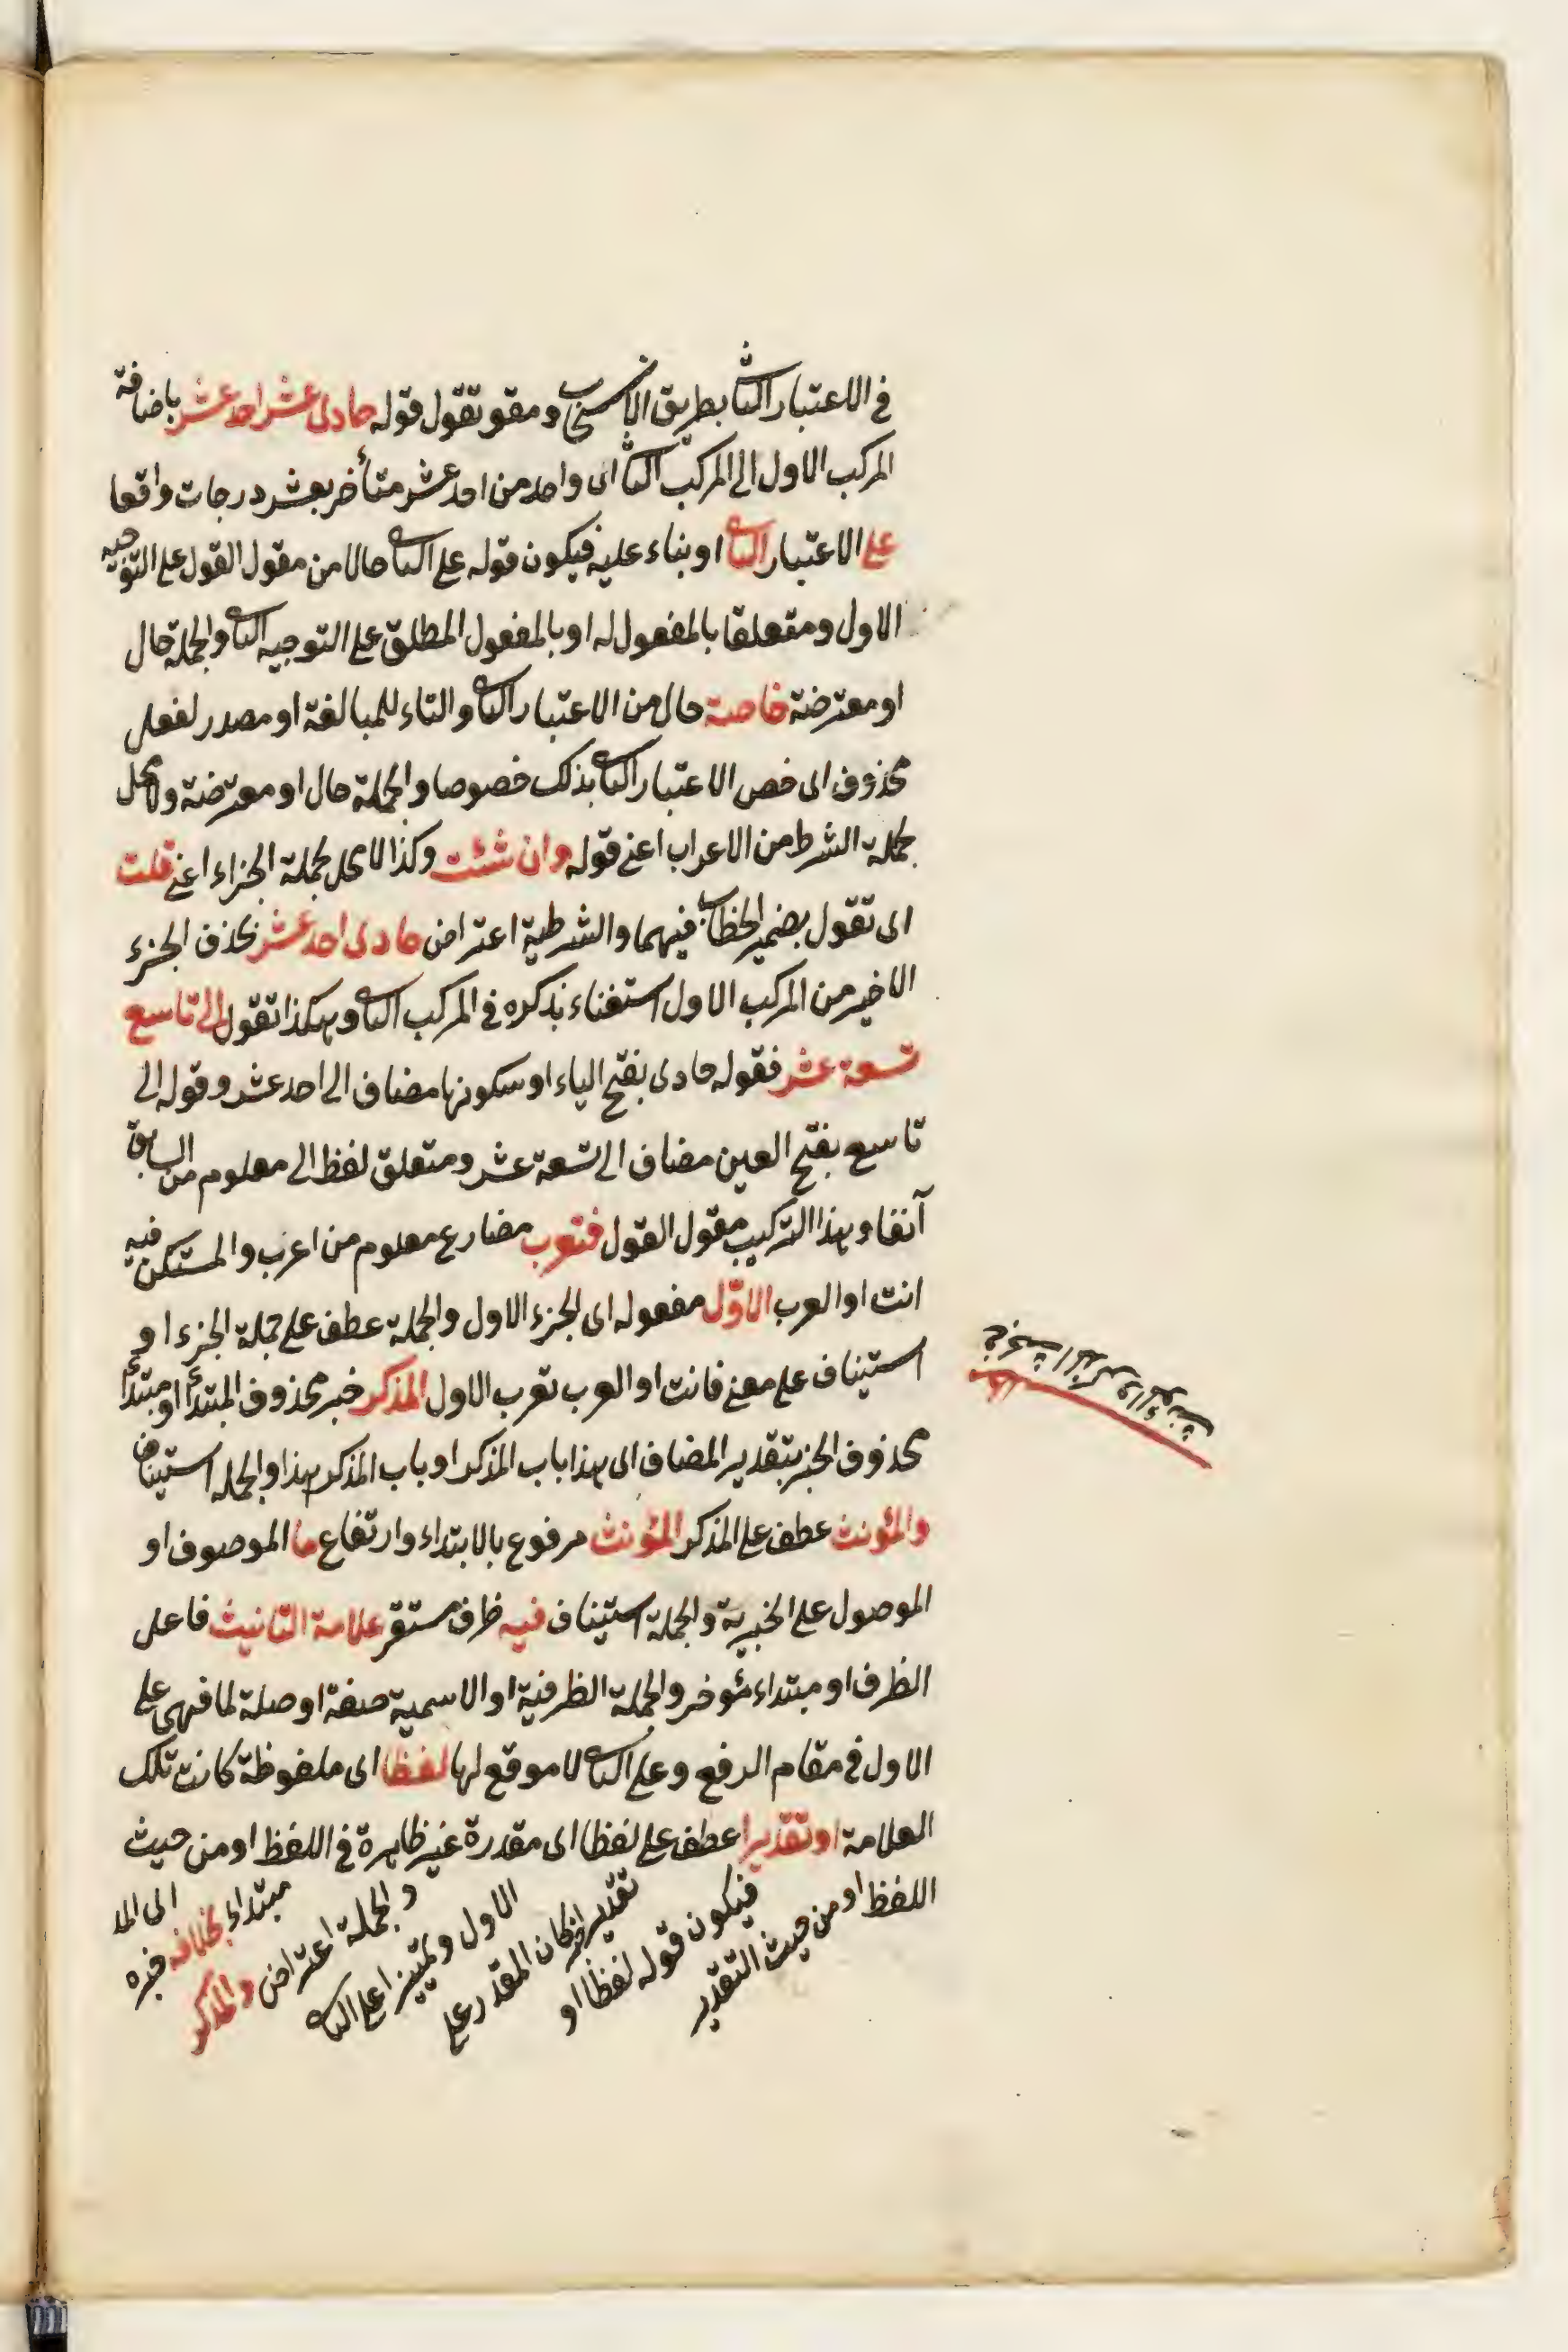 في الاعتبار الثاني بطريق الانسحاب ومقو تقول قوله حادى عشر احد عشر باضافة
المركب الاول الى المركب الثاني اى واحد من احد عشر متأخر بعشر درجات واقعا
على الاعتبار الثاني او بناء عليه فيكون قوله على الثاني حالا من مقول القول على التوجيه
الاول ومتعلقا بالمفعول له او بالمفعول المطلق على التوجيه الثاني والجملة حال
او معترضة خاصة حال من الاعتبار الثاني والتاء للمبالغة او مصدر لفعل
محذوف اى خص الاعتبار الثاني بذلك خصوصا والجملة حال او معترضة ولا محل
لجملة الشرط من الاعراب اعنى قوله وان شئت وكذا لا محل لجملة الجزاء اعنى قلت
اى تقول بضمير الخطاب فيهما والشرطية اعتراض حادى احد عشر بحذف الجزء
الاخير من المركب الاول استغناء بذكره في المركب الثاني وهكذا تقول الى تاسع
تسعة عشر فقوله حادى بفتح الياء او سكونها مضاف الى احد عشر وقوله الى
تاسع بفتح العين مضاف الى تسعة عشر ومتعلق لفظ الى معلوم من السابق
آنفا وهذا التركيب مقول القول فتعرب مضارع معلوم من اعرب والمستكن فيه
انت او العرب الاوّل مفعوله اى الجزء الاول والجملة عطف على جملة الجزء او
استيناف على معنى فانت او العرب تعرب الاول المذكر خبر محذوف المبتدأ او مبتدأ
محذوف الخبر بتقدير المضاف اى هذا باب المذكر او باب المذكر هذا والجملة استيناف
والمؤنث عطف على المذكر المؤنث مرفوع بالابتداء وارتفاع ما الموصوف او
الموصول على الخبرية والجملة استيناف فيه ظرف مستقر علامة التانيث فاعل
الظرف او مبتداء مؤخر والجملة الظرفية او الاسمية صفة او صلة لما فهى على
الاول في مقام الرفع وعلى الثاني لا موقع لها لفظا اى ملفوظة كانت تلك
العلامة او تقديرا عطف على لفظا اى مقدرة غير ظاهرة في اللفظ او من حيث
اللفظ او من حيث التقدير
فيكون قوله لفظا او
تقديرا خبر كان المقدر على
الاول وتمييزا على الثاني
والجملة اعتراض والمذكر
مبتداء بخلافه خبره
اى الما